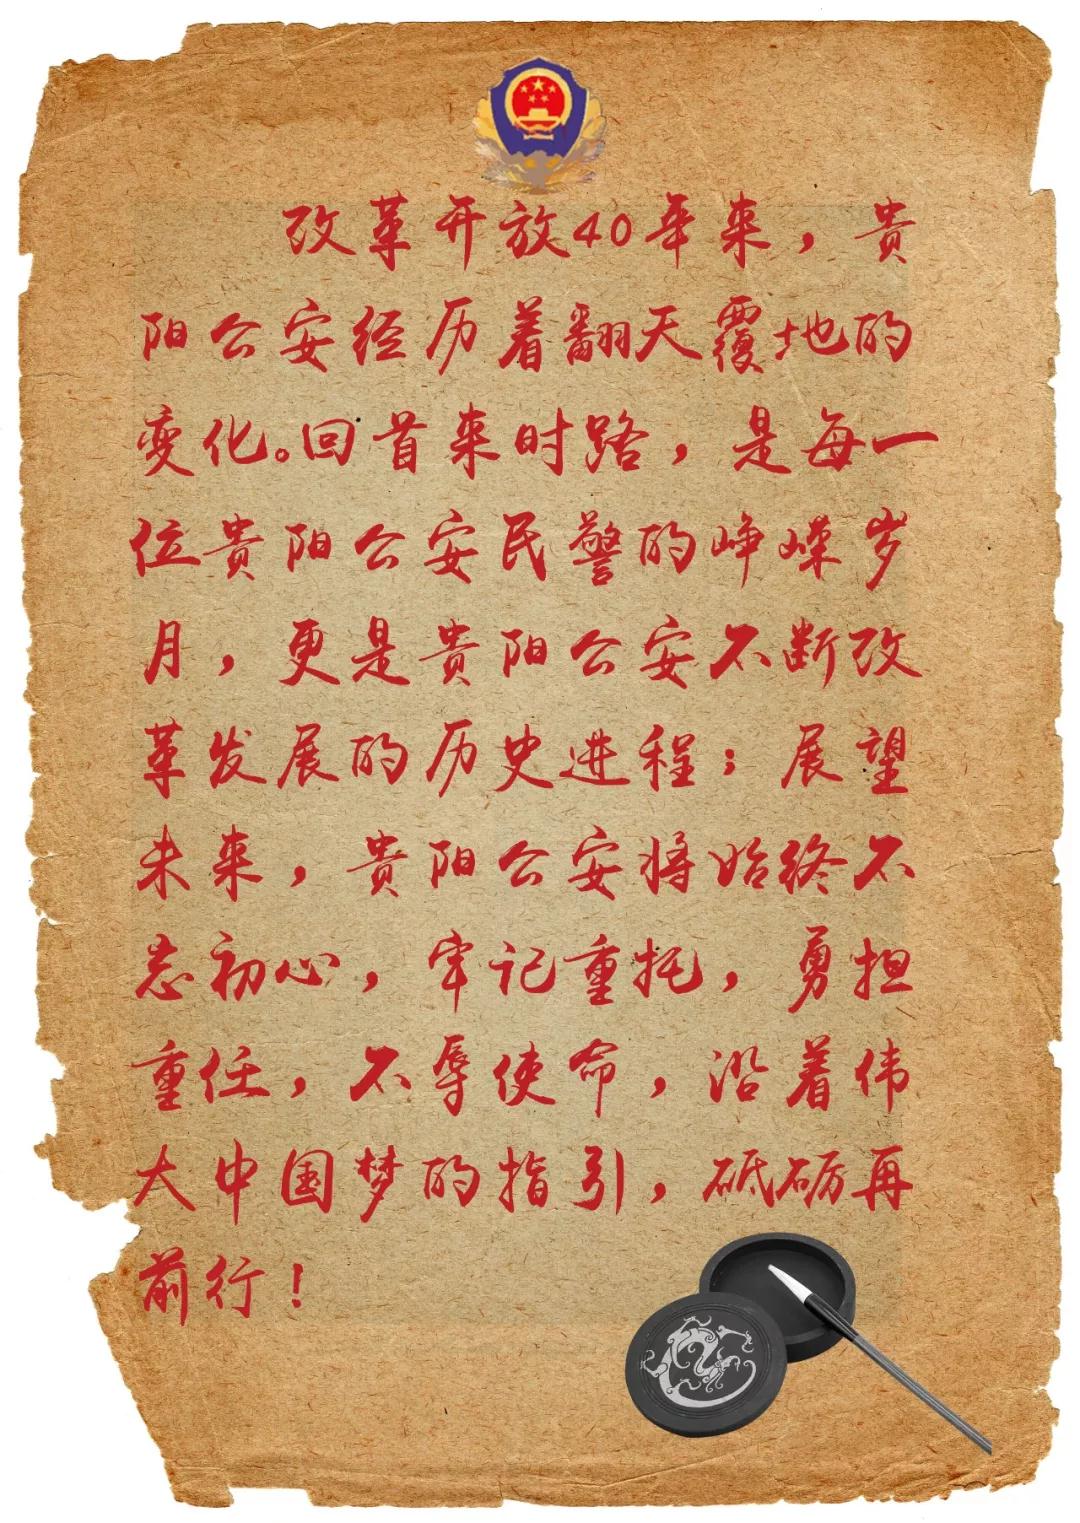 改革开放40年来，贵
阳公安经历着翻天覆地的
变化。回首来时路，是每一
位贵阳公安民警的峥嵘岁
月，更是贵阳公安不断改
革发展的历史进程；展望
未来，贵阳公安将始终不
忘初心，牢记重托，勇担
重任，不辱使命，沿着伟
大中国梦的指引，砥砺再
前行！